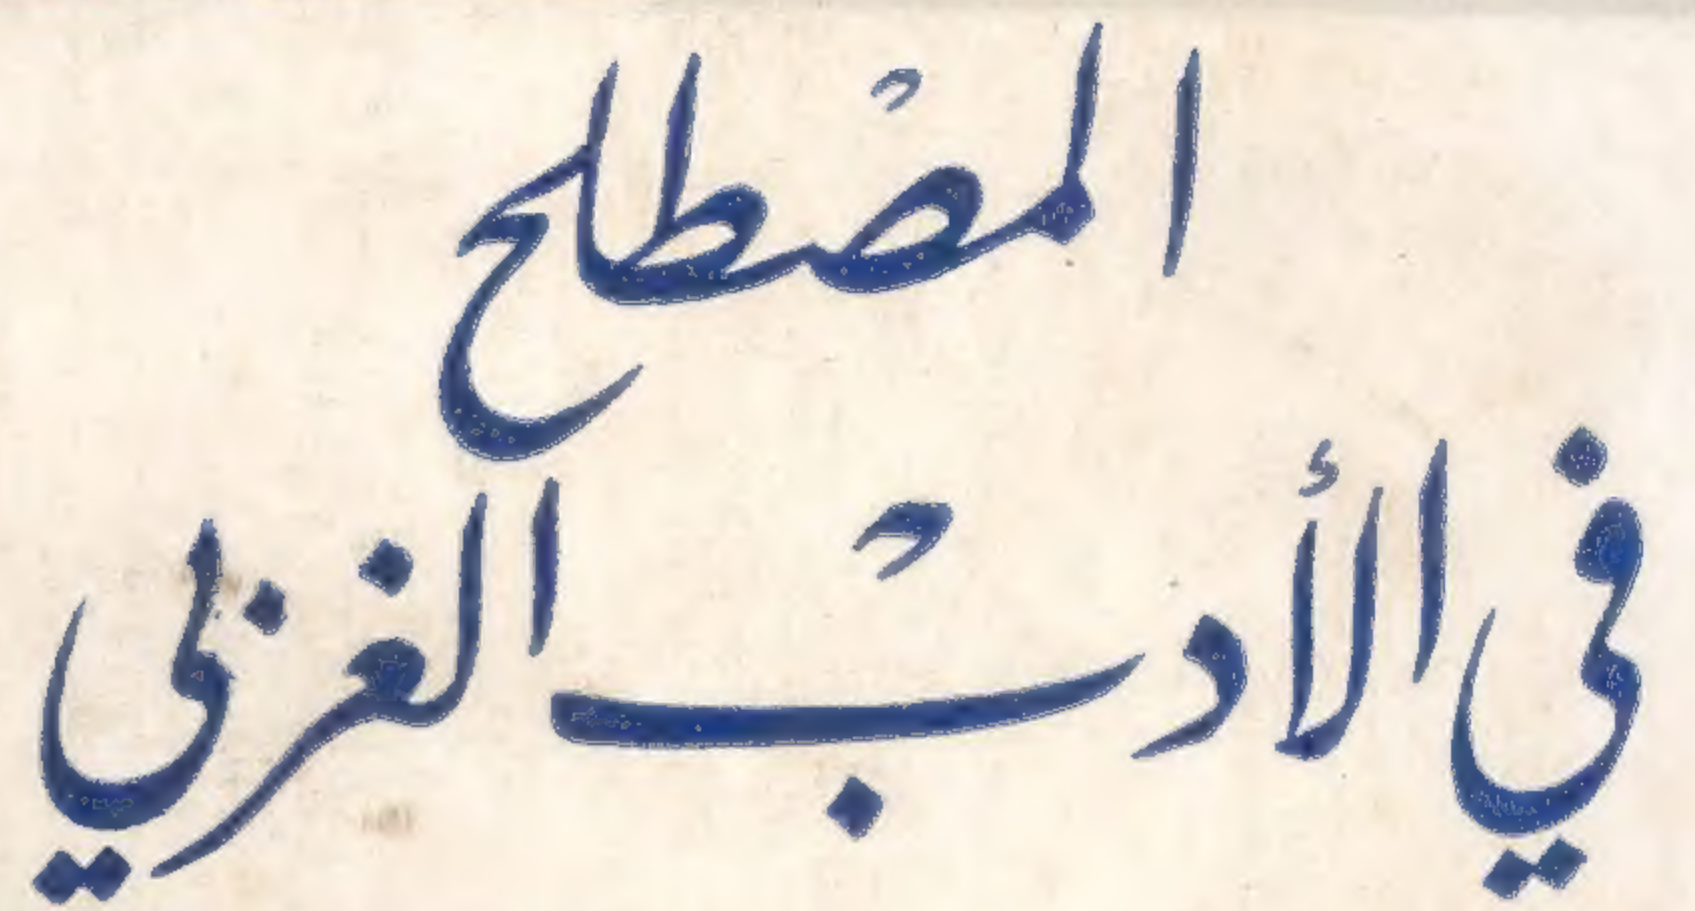 المصطلح
في الأدب الغربي